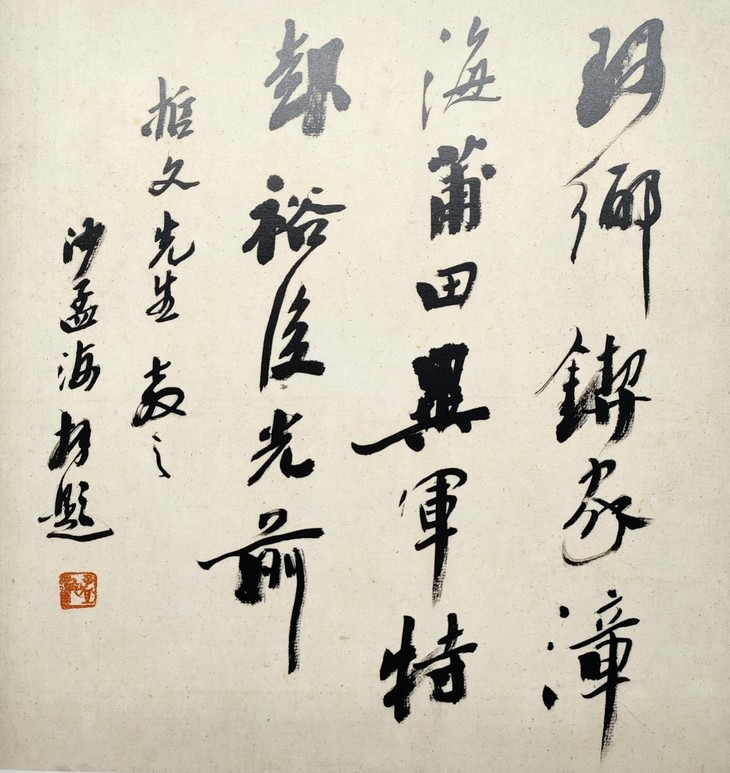 鄉鍥家漳
海莆田異軍特
起裕後光前
哲文先生教之
沙孟海拜題